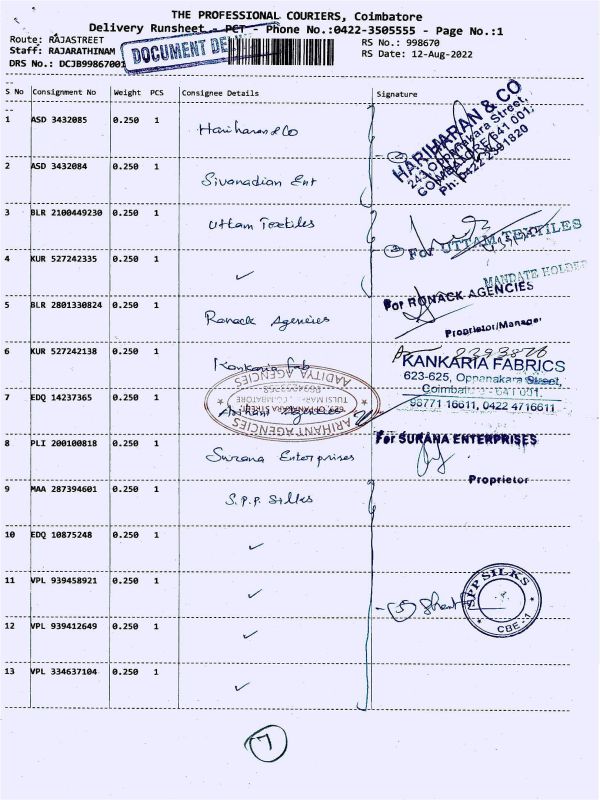 THE PROFESSIONAL COURIERS, Coimbatore
Delivery Runsheet - PCT - Phone No.:0422-3505555 - Page No.:1
Route: RAJASTREET RS No.: 998670
Staff: RAJARATHINAM DOCUMENT DE RS Date: 12-Aug-2022
DRS No.: DCJB99867001
S No Consignment No Weight PCS Consignee Details Signature
1 ASD 3432085 0.250 1 Hariharan & Co
HARIHARAN & CO
243, Oppanakara Street,
COIMBATORE 641 001.
Ph: 0422 2391820
2 ASD 3432084 0.250 1 Sivanadian Ent
3 BLR 2100449230 0.250 1 Uttam Textiles
For UTTAM TEXTILES
4 KUR 527242335 0.250 1 ✓
MANDATE HOLDER
5 BLR 2801330824 0.250 1 Ronack Agencies
For RONACK AGENCIES
Proprietor/Manager
6 KUR 527242138 0.250 1 Kankaria Fab
KANKARIA FABRICS
623-625, Oppanakara Street,
Coimbatore - 641 001.
98771 16611, 0422 4716611
AADITYA AGENCIES
7 EDQ 14237365 0.250 1 Arihant Agencies
ARIHANT AGENCIES
8 PLI 200100818 0.250 1 Surana Enterprises
For SURANA ENTERPRISES
Proprietor
9 MAA 287394601 0.250 1 S.P.P. Silks
10 EDQ 10875248 0.250 1 ✓
11 VPL 939458921 0.250 1 ✓
(5)
SPP SILKS
CBE-1
12 VPL 939412649 0.250 1 ✓
13 VPL 334637104 0.250 1 ✓
7